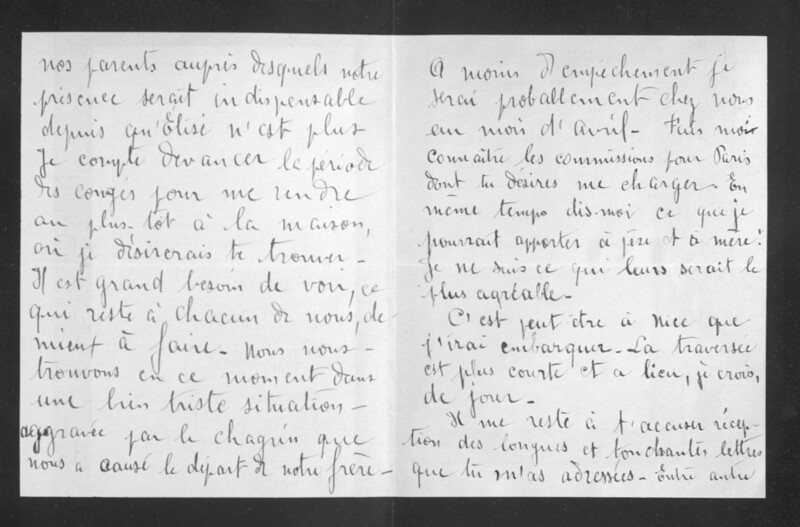 nos parents auprès desquels notre
présence serait indispensable
depuis qu'Elisé n'est plus
Je compte devancer la période
des congés pour me rendre
au plus-tôt à la maison,
où je désirerais te trouver -
Il est grand besoin de voir, ce
qui reste à chacun de nous, de
mieux à faire - Nous nous -
trouvons en ce moment dans
une bien triste situation -
aggravée par le chagrin que
nous a causé le départ de notre frère -
A moins d'empêchement je
serai probablement chez nous
au mois d'avril - Fais moi
connaître les commissions pour Paris
dont tu désires me charger - En
même temps dis-moi ce que je
pourrait apporter à père et à mère!
Je ne sais ce qui leurs serait le
plus agréable -
C'est peut être à Nice que
j'irai embarquer - La traversée
est plus courte et a lieu, je crois,
de jour -
Il me reste à t'accuser récep-
tion des longues et touchantes lettres
que tu m'as adressées - Entre autre